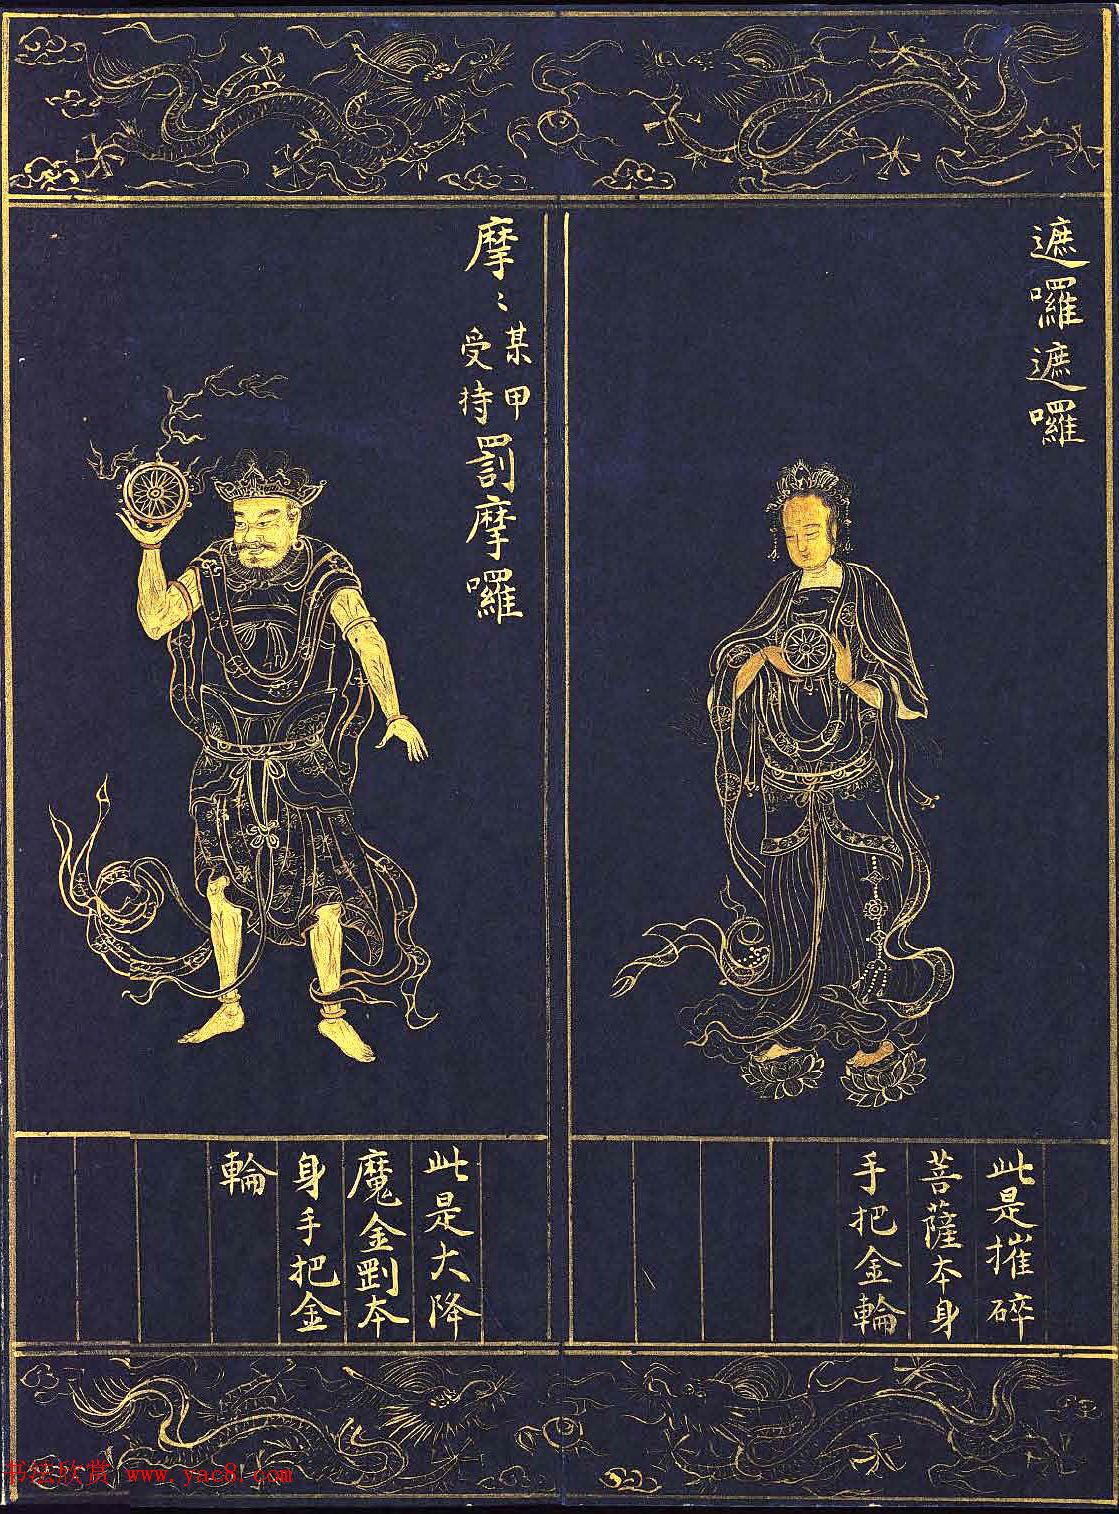 遮囉遮囉
此是摧碎
菩薩本身
手把金輪
摩〻某甲受持罰摩囉
此是大降
魔金剛本
身手把金
輪
书法欣赏 www.yac8.com